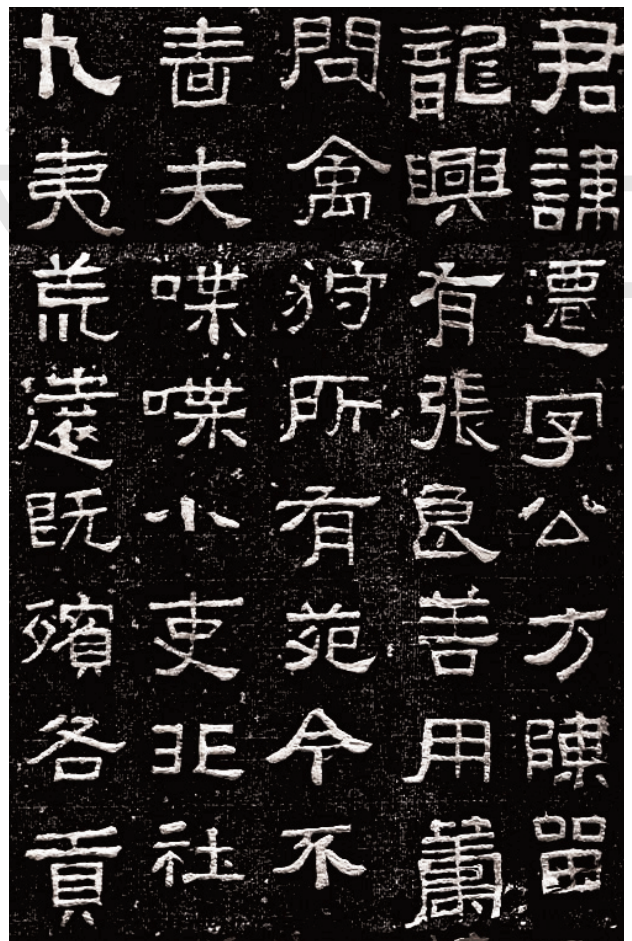 君諱遷字公方陳留
龍興有張良善用籌
問禽狩所有苑令不
嗇夫喋喋小吏非社
九夷荒遠既殯各貢